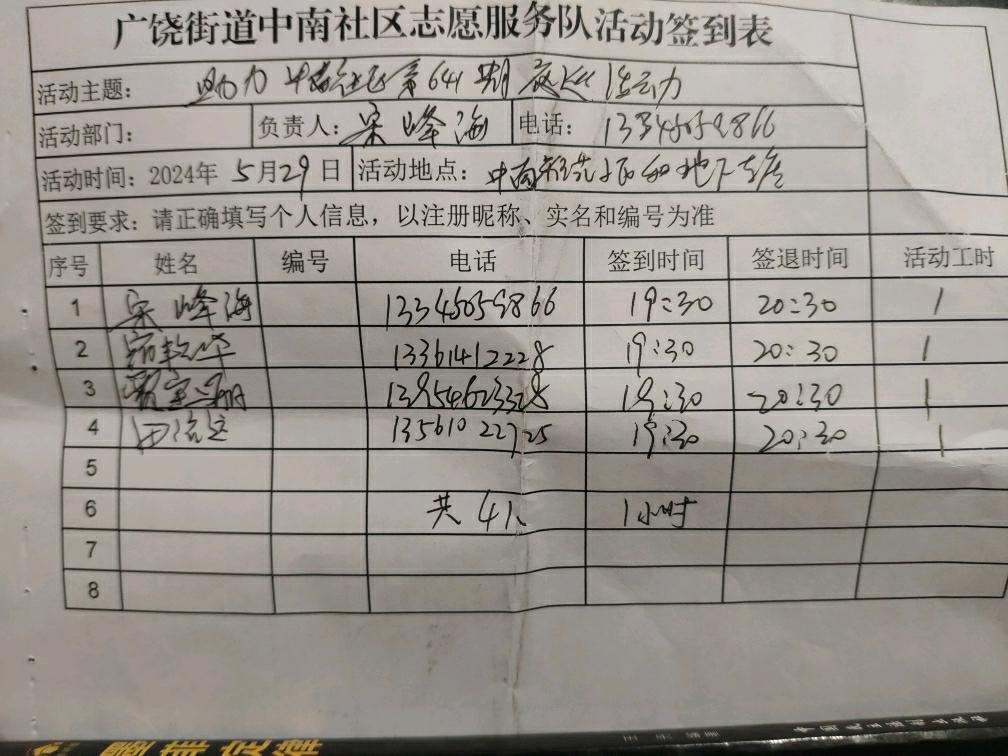 广饶街道中南社区志愿服务队活动签到表
活动主题： 助力中南社区第641期 活动
活动部门： 负责人：宋峰海 电话：13345059866
活动时间：2024年5月29日 活动地点：中南
签到要求：请正确填写个人信息，以注册昵称、实名和编号为准
序号 姓名 编号 电话 签到时间 签退时间 活动工时
1 宋峰海 13345059866 19:30 20:30 1
2 13361412228 19:30 20:30 1
3 13954623328 19:30 20:30 1
4 13561022725 19:30 20:30 1
5
6 共4人 1小时
7
8